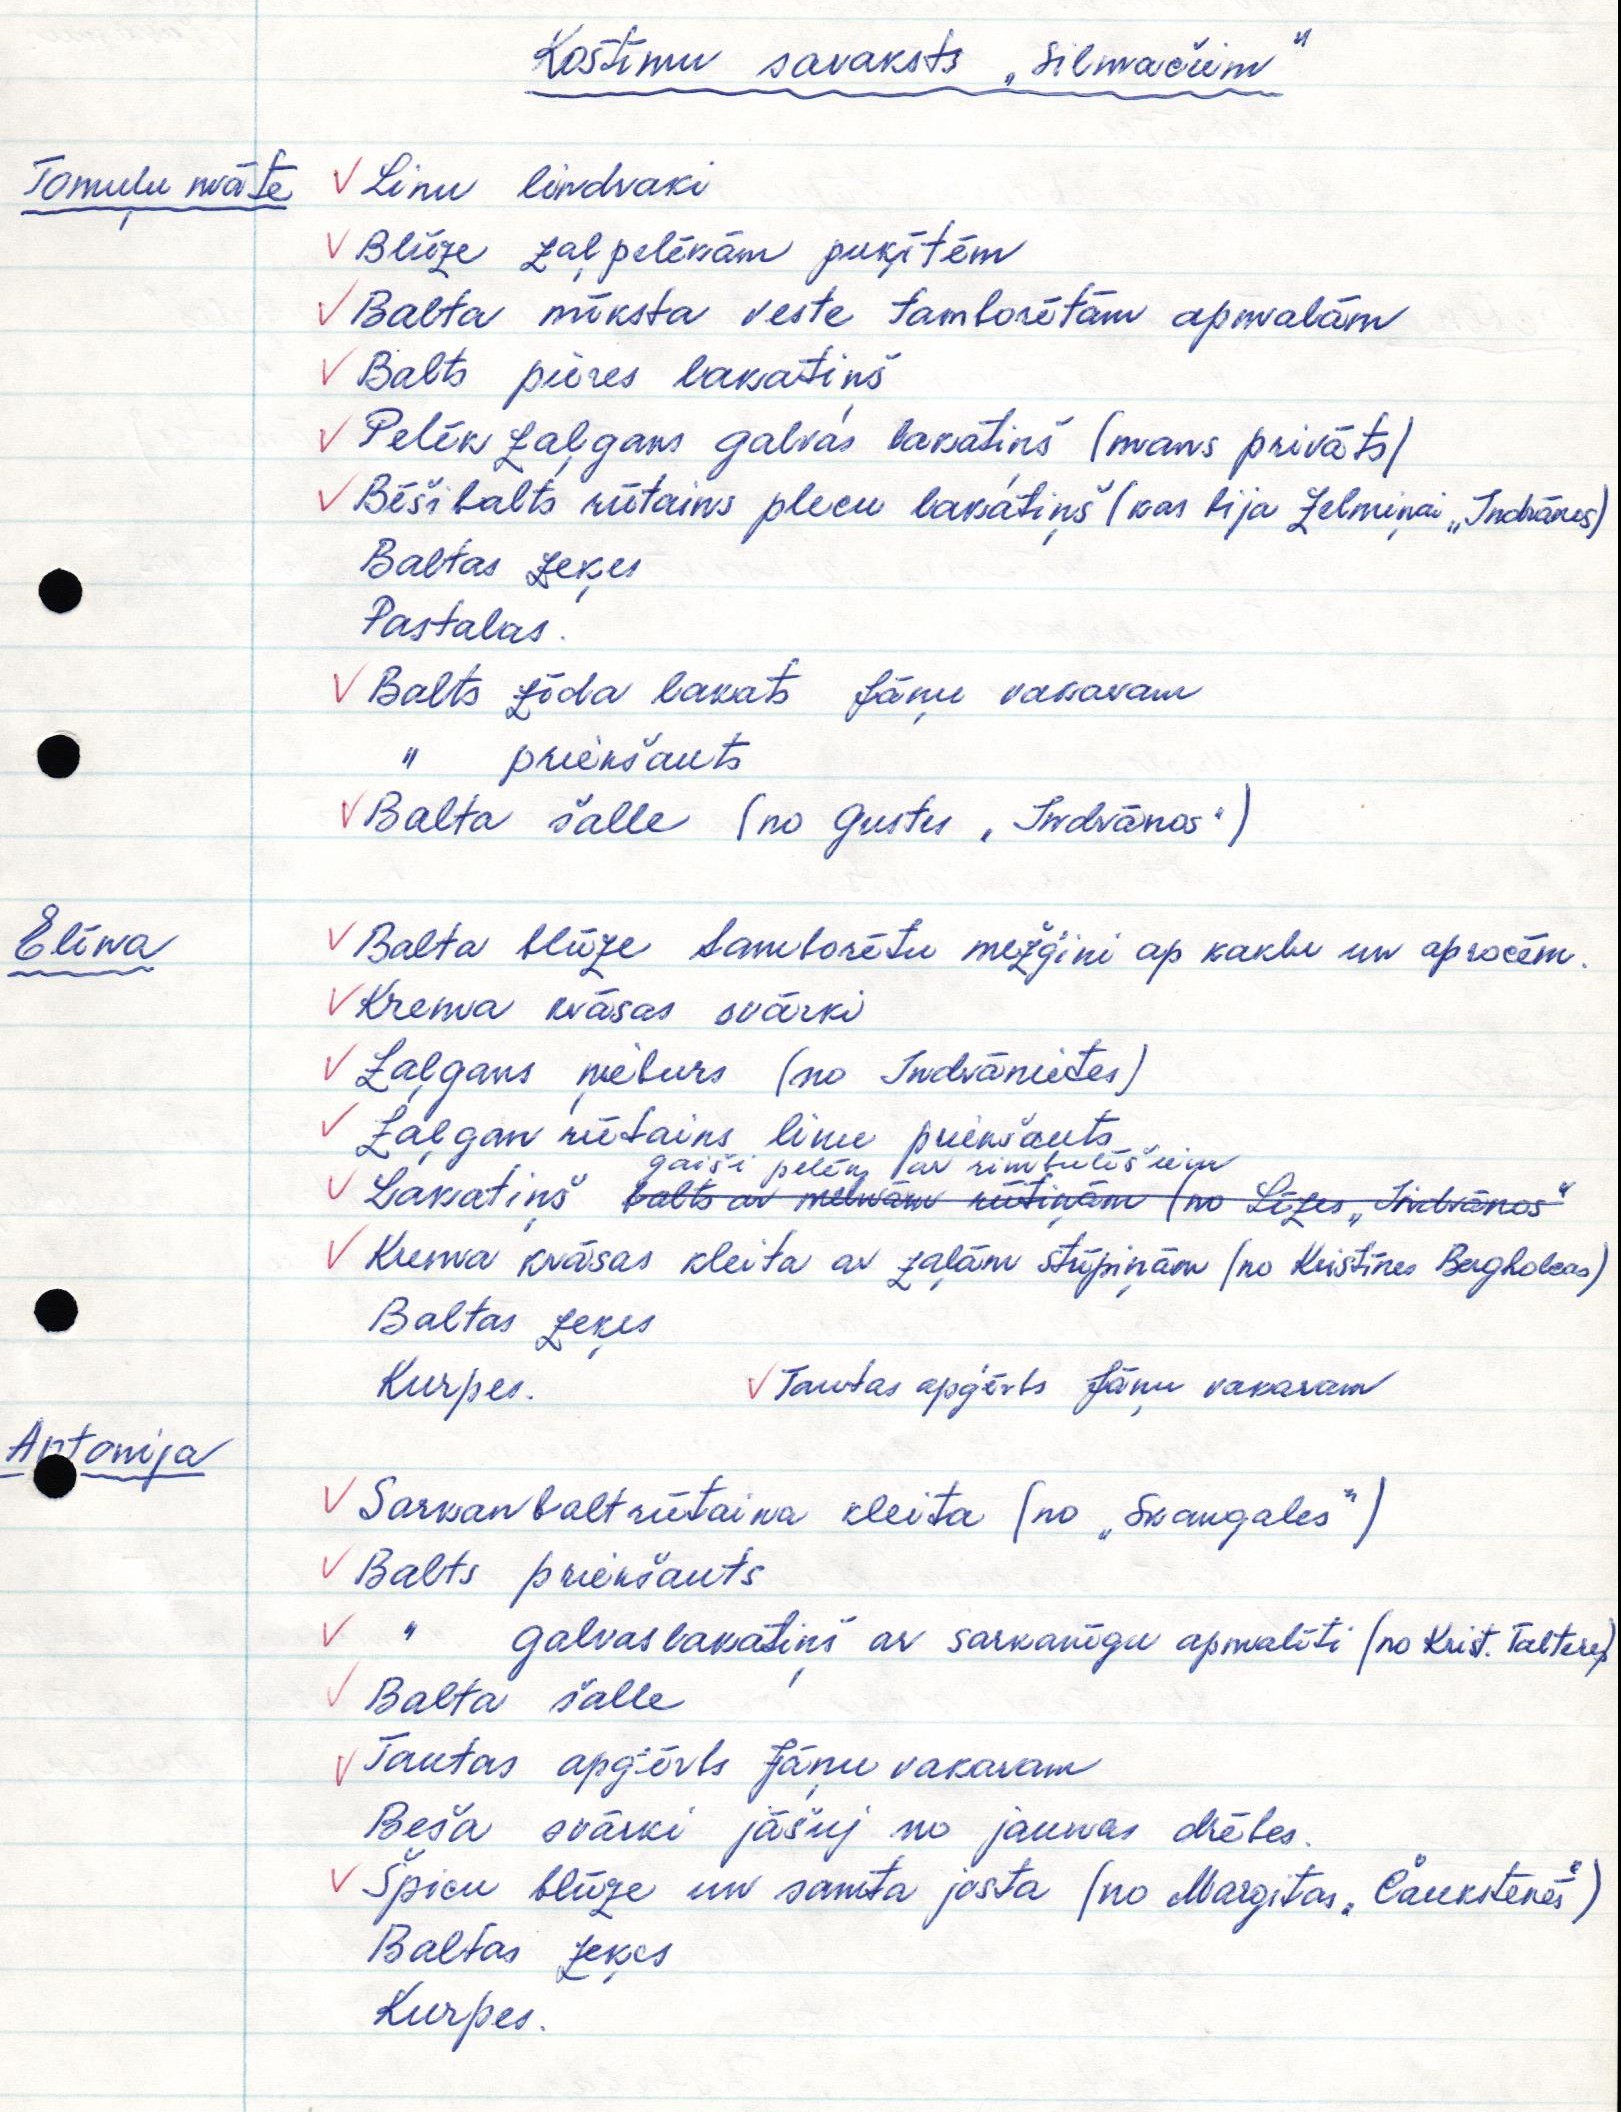 Kostīmu saraksts „Silmačiem"
Tomuļu māte ✓ Linu lindraki
✓ Blūze zaļpelēkām puķītēm
✓ Balta mīksta veste tamborētām apmalām
✓ Balts pieres lakatiņš
✓ Pelēkzaļgans galvas lakatiņš (mans privāts)
✓ Bēšibalts rūtains plecu lakatiņš (kas bija Zelmiņai „Indrānos)
Baltas zeķes
Pastalas.
✓ Balts zīda lakats Jāņu vakaram
" priekšauts
✓ Balta šalle (no Gustes „Indrānos")
Elīna ✓ Balta blūze tamborētu mežģīni ap kaklu un aprocēm.
✓ Krema krāsas svārki
✓ Zaļgans ņieburs (no Indrānietes)
✓ Zaļgan rūtains linu priekšauts
gaiši pelēks ar rimbulīšiem
✓ Lakatiņš balts ar melnām rūtiņām (no Līzes „Indrānos"
✓ Krema krāsas kleita ar zaļām strīpiņām (no Kristīnes Bergholcas)
Baltas zeķes
Kurpes. ✓ Tautas apģērbs Jāņu vakaram
Antonija
✓ Sarkanbaltrūtaina kleita (no „Skangales")
✓ Balts priekšauts
✓ " galvaslakatiņš ar sarkanīgu apmalīti (no Krist. Talteres)
✓ Balta šalle
✓ Tautas apģērbs Jāņu vakaram
Beša svārki jāšuj no jaunas drēbes.
✓ Špicu blūze un samta josta (no Margitas „Čaukstenēs")
Baltas zeķes
Kurpes.